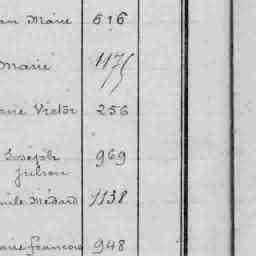 an Marie 616
Marie 1175
arie Victor 256
Joseph 969
Julien
mile Médard 1138
arie francois 948